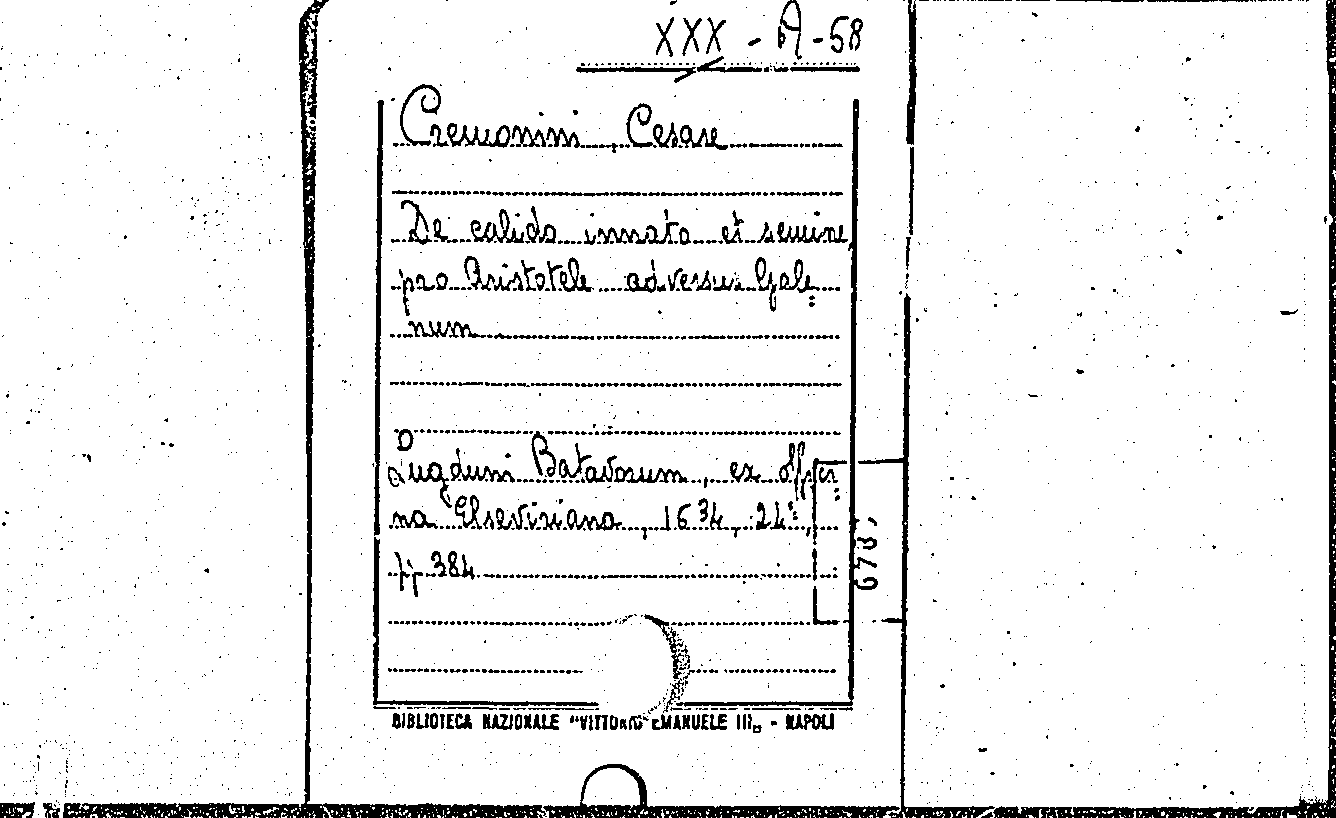 XXX - A - 58
Cremonini, Cesare
De calido innato et semine
pro Aristotele adversus Gale=
num
Lugduni Batavorum, ex offici=
na Elseviriana, 1634, 24°,
pp 384
BIBLIOTECA NAZIONALE "VITTORIO EMANUELE III" - NAPOLI